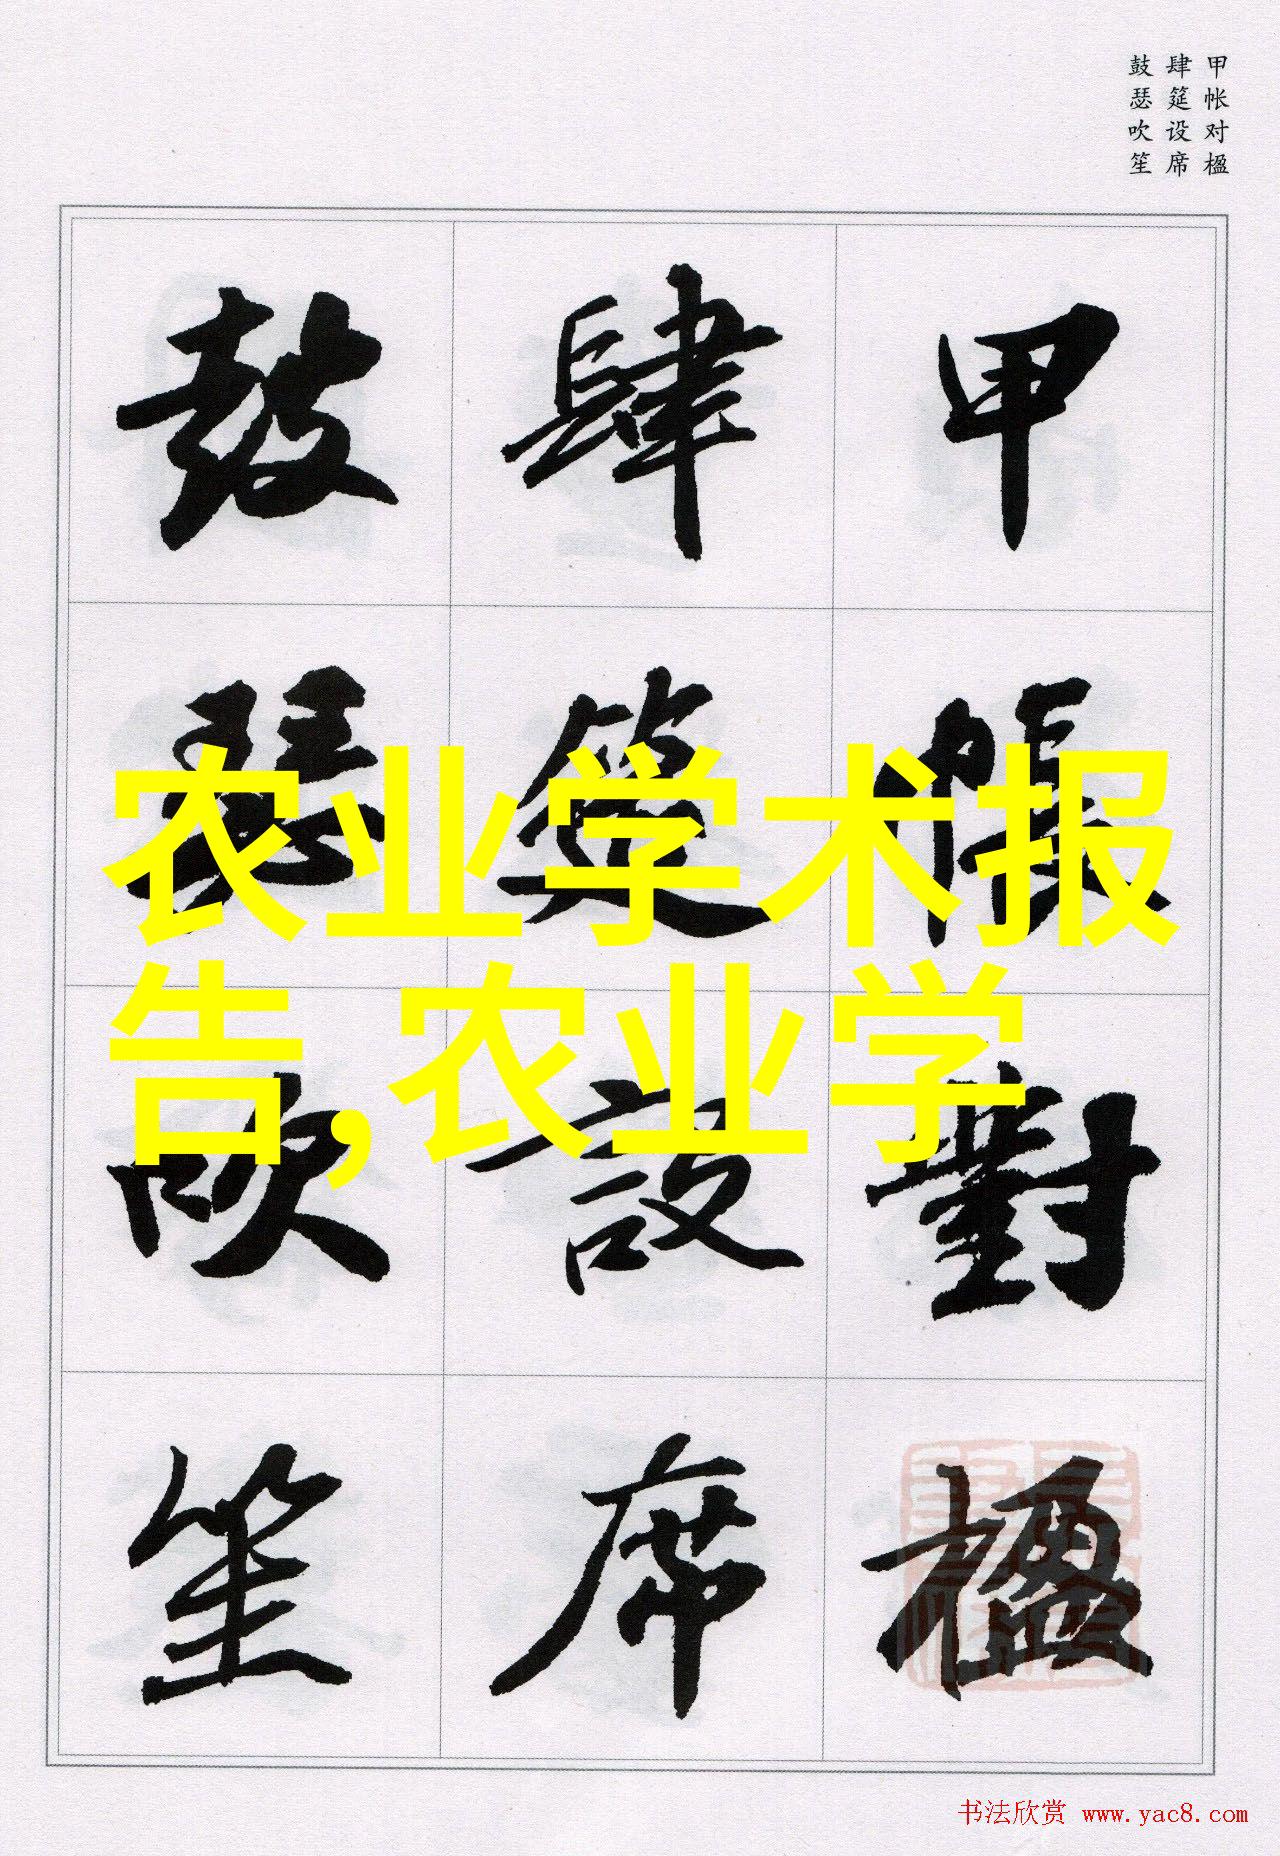 甲帐对楹
肆筵设席
鼓瑟吹笙
甲帳對楹
肆筵設席
鼓瑟吹笙
农业学术报
告,农业学
书法欣赏 www.yac8.com